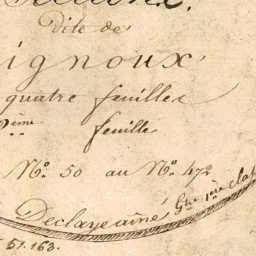 dite de
ignoux
quatre feuilles
2ème feuille
No. 50 au No. 472
Declaye aîné
Gtre 1ère clas
51.163.